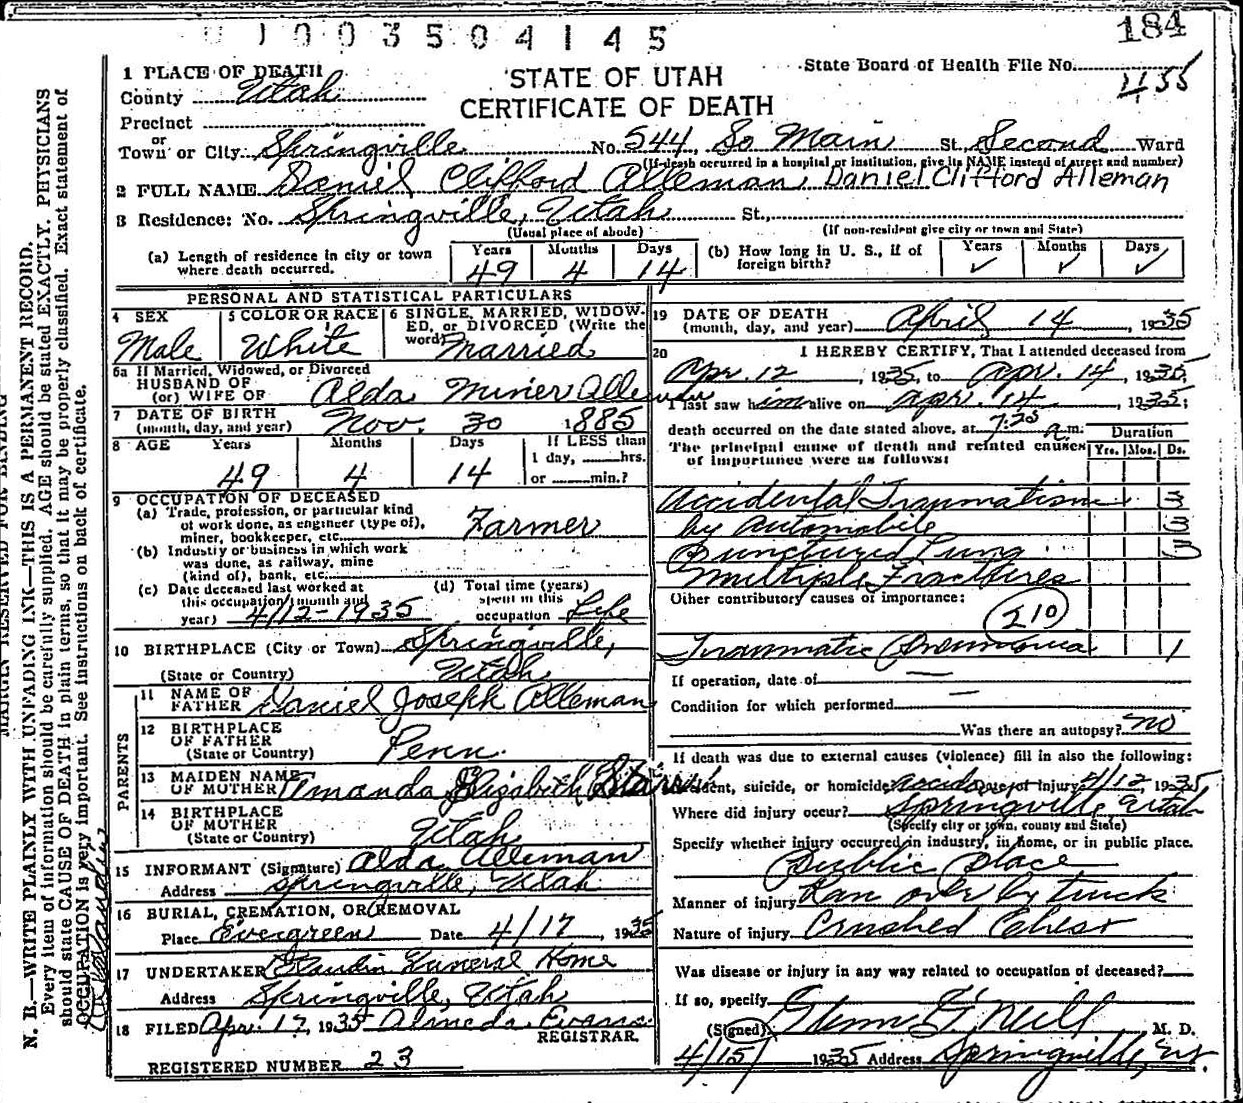 184
0 1 0 0 3 5 0 4 1 4 5
1 PLACE OF DEATH
STATE OF UTAH
CERTIFICATE OF DEATH
State Board of Health File No. 455
County Utah
Precinct
or
Town or City Springville No. 544 So Main St. Second Ward
(If death occurred in a hospital or institution, give its NAME instead of street and number)
2 FULL NAME Daniel Clifford Alleman, Daniel Clifford Alleman
3 Residence: No. Springville, Utah St.,
(Usual place of abode) (If non-resident give city or town and State)
(a) Length of residence in city or town where death occurred. Years 49 Months 4 Days 14
(b) How long in U. S., if of foreign birth? Years ✓ Months ✓ Days ✓
PERSONAL AND STATISTICAL PARTICULARS
4 SEX Male
5 COLOR OR RACE White
6 SINGLE, MARRIED, WIDOWED, or DIVORCED (Write the word) Married
6a If Married, Widowed, or Divorced
HUSBAND OF
(or) WIFE OF Alda Miner Alleman
7 DATE OF BIRTH
(month, day, and year) Nov. 30 1885
8 AGE Years 49 Months 4 Days 14 If LESS than 1 day, hrs. or min.?
9 OCCUPATION OF DECEASED
(a) Trade, profession, or particular kind of work done, as engineer (type of), miner, bookkeeper, etc. Farmer
(b) Industry or business in which work was done, as railway, mine (kind of), bank, etc.
(c) Date deceased last worked at this occupation (month and year) 4/12-1935
(d) Total time (years) spent in this occupation Life
10 BIRTHPLACE (City or Town) Springville,
(State or Country) Utah
PARENTS
11 NAME OF FATHER Daniel Joseph Alleman
12 BIRTHPLACE OF FATHER
(State or Country) Penn.
13 MAIDEN NAME OF MOTHER Amanda Elizabeth
14 BIRTHPLACE OF MOTHER
(State or Country) Utah
15 INFORMANT (Signature) Alda Alleman
Address Springville, Utah
16 BURIAL, CREMATION, OR REMOVAL
Place Evergreen Date 4/17, 1935
17 UNDERTAKER Claudin Funeral Home
Address Springville, Utah
18 FILED Apr. 17, 1935 Almeda Evans
REGISTRAR.
REGISTERED NUMBER 23
19 DATE OF DEATH
(month, day, and year) April 14, 1935
20 I HEREBY CERTIFY, That I attended deceased from
Apr. 12, 1935, to Apr. 14, 1935,
I last saw him alive on Apr. 14, 1935;
death occurred on the date stated above, at 7:25 a m.
The principal cause of death and related causes of importance were as follows:
Duration
Yrs. Mos. Ds.
Accidental Traumatism 3
by Automobile 3
Punctured Lung 3
Multiple Fractures
Other contributory causes of importance:
210
Traumatic Pneumonia 1
If operation, date of —
Condition for which performed —
Was there an autopsy? no
If death was due to external causes (violence) fill in also the following:
Accident, suicide, or homicide? Date of injury 4/12, 1935
Where did injury occur? Springville Utah
(Specify city or town, county and State)
Specify whether injury occurred in industry, in home, or in public place.
Public Place
Manner of injury Ran over by truck
Nature of injury Crushed Chest
Was disease or injury in any way related to occupation of deceased?
If so, specify
(Signed) Glenn G. Neill M. D.
4/15/ 1935 Address Springville, Ut.
N. B.—WRITE PLAINLY WITH UNFADING INK—THIS IS A PERMANENT RECORD.
Every item of information should be carefully supplied. AGE should be stated EXACTLY. PHYSICIANS
should state CAUSE OF DEATH in plain terms, so that it may be properly classified. Exact statement of
OCCUPATION is very important. See instructions on back of certificate.
MARGIN RESERVED FOR BINDING